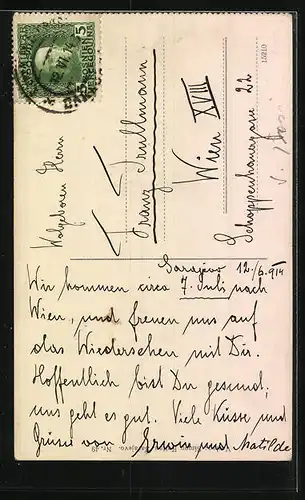 Wolgeboren Herrn
Franz Trullmann
Wien XVIII
Schoppenhauergasse 22
15210
5
Sarajevo 12./6. 914
Wir kommen circa 7. Juli nach
Wien, und freuen uns auf
das Wiedersehen mit Dir.
Hoffentlich bist Du gesund;
uns geht es gut. Viele Küsse und
Grüsse von Erwin und Matilde
Nr. 49